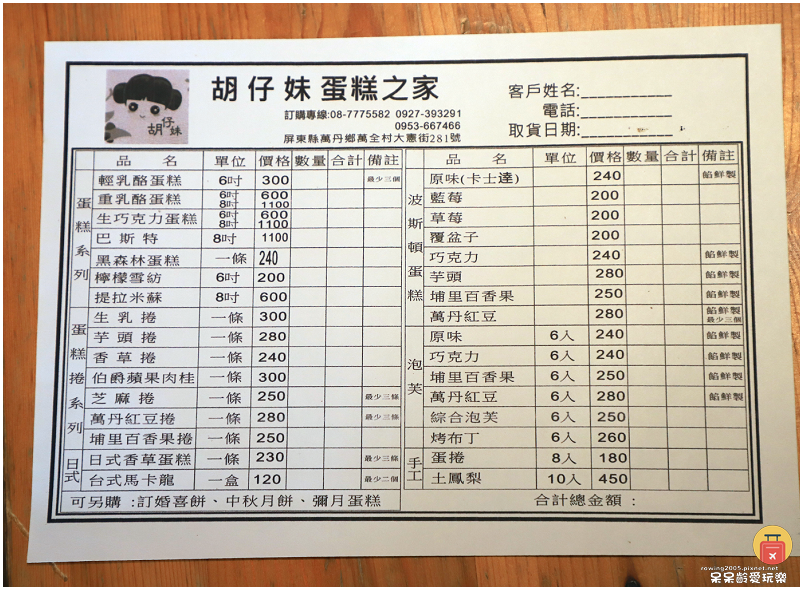 胡仔妹
胡仔妹蛋糕之家
訂購專線:08-7775582 0927-393291
0953-667466
屏東縣萬丹鄉萬全村大憲街281號
客戶姓名:
電話:
取貨日期:
品名 單位 價格 數量 合計 備註
蛋糕系列
輕乳酪蛋糕 6吋 300 最少三個
重乳酪蛋糕 6吋 600
8吋 1100
生巧克力蛋糕 6吋 600
8吋 1100
巴斯特 8吋 1100
黑森林蛋糕 一條 240
檸檬雪紡 6吋 200
提拉米蘇 8吋 600
蛋糕捲系列
生乳捲 一條 300
芋頭捲 一條 280
香草捲 一條 240
伯爵蘋果肉桂 一條 300
芝麻捲 一條 250 最少三條
萬丹紅豆捲 一條 280 最少三條
埔里百香果捲 一條 250
日式
日式香草蛋糕 一條 230 最少三條
台式馬卡龍 一盒 120 最少二個
可另購:訂婚喜餅、中秋月餅、彌月蛋糕
品名 單位 價格 數量 合計 備註
波斯頓蛋糕
原味(卡士達) 240 餡鮮製
藍莓 200
草莓 200
覆盆子 200
巧克力 240 餡鮮製
芋頭 280 餡鮮製
埔里百香果 250 餡鮮製
萬丹紅豆 280 餡鮮製
最少三個
泡芙
原味 6人 240 餡鮮製
巧克力 6人 240 餡鮮製
埔里百香果 6人 250 餡鮮製
萬丹紅豆 6人 280 餡鮮製
綜合泡芙 6人 250
手工
烤布丁 6人 260
蛋捲 8人 180
土鳳梨 10人 450
合計總金額:
rowing2005.pixnet.net
呆呆齡愛玩樂